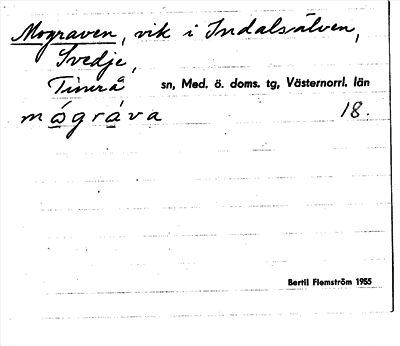 Mograven, vik i Indalsälven,
Svedje,
Timrå sn, Med. ö. doms. tg, Västernorrl. län
mógráva 18.
Bertil Flemström 1955